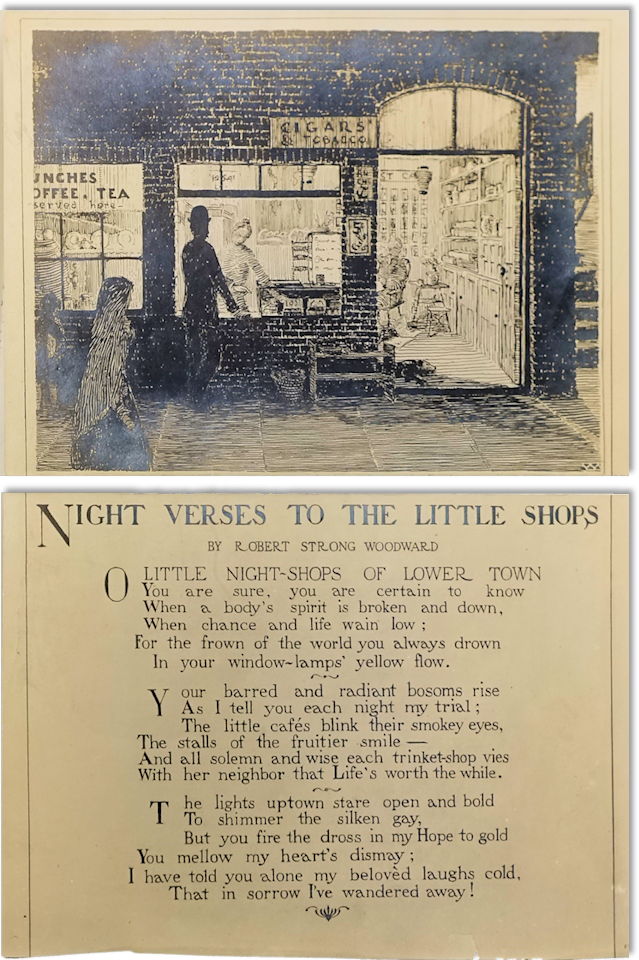 CIGARS
& TOBACCO
UNCHES
OFFEE. TEA
served here
NIGHT VERSES TO THE LITTLE SHOPS
BY ROBERT STRONG WOODWARD
O LITTLE NIGHT-SHOPS OF LOWER TOWN
You are sure, you are certain to know
When a body's spirit is broken and down,
When chance and life wain low ;
For the frown of the world you always drown
In your window-lamps' yellow flow.
Your barred and radiant bosoms rise
As I tell you each night my trial ;
The little cafés blink their smokey eyes,
The stalls of the fruitier smile —
And all solemn and wise each trinket-shop vies
With her neighbor that Life's worth the while.
The lights uptown stare open and bold
To shimmer the silken gay,
But you fire the dross in my Hope to gold
You mellow my heart's dismay ;
I have told you alone my belovèd laughs cold,
That in sorrow I've wandered away !